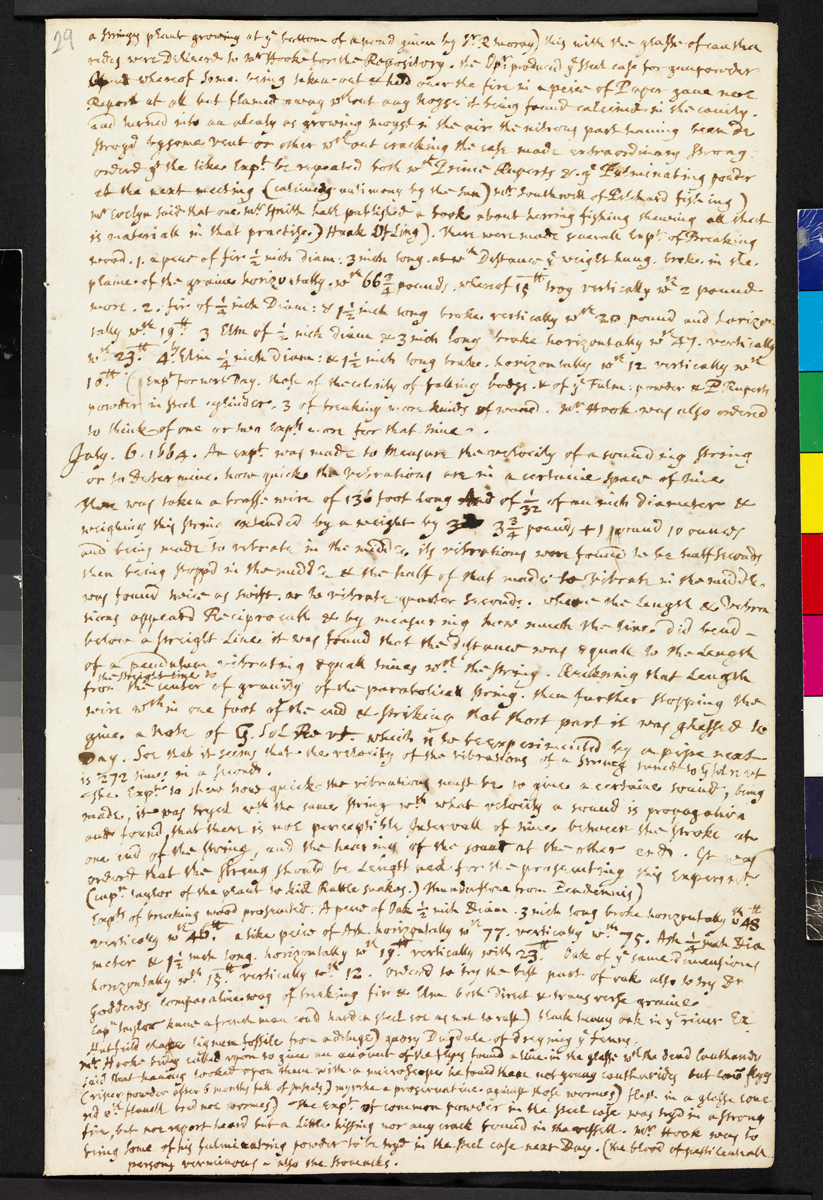 29
a stringy plant growing at ye bottom of a pond given by Sr. R moray) this with the glasse of cantha
rides were Delivered to Mr Hooke for the Repository. the Opr. produced ye steel case for gunpowder
whereof some. being taken out & held over the fire in a peice of Paper gave noe
Report at all but flamed away wthout any noyse it being found calcined in the cavity.
and turned into an alcaly as growing moyst in the air the nitrous part having been de
stroyd by some vent or other wthout cracking the case made extraordinary strong.
orderd yt the like Expt. be repeated both wth Prince Ruperts & ye Fulminating powder
at the next meeting (calcining antimony by the sun) Mr. Southwell of Pilchard fishing)
Mr Evelyn said that one. Mr Smith hath published a book about herring fishing shewing all that
is materiall in that practise.) Hook Of Ling). There were made severall Expts. of Breaking
wood. 1. a peice of fir 1/2 inch diam: 3 inch long. at wch Distance ye weight hung. broke. in the.
plaine. of the graine horizontally. wth 66 3/4 pounds. whereof 15th troy vertically wth 2 pound
more. 2. fir of 1/4 inch Diam: & 1 1/2 inch long broke vertically wth 20 pound and horizon
tally wth 19th. 3 Elm of 1/2 inch diam & 3 inch long broke horizontally wth 47. vertically
wth 23th. 4. Elm 1/4 inch Diam: & 1 1/2 inch long broke. horizontally wth 12 vertically wth
10th. (Expts for next Day. those of the celerity of falling bodys. & of ye Fulm: powder & P Ruperts
powder in steel cylinder. 3 of breaking more kinds of wood. Mr. Hook was also ordered
to think of one or two Expts more for that time.
July. 6. 1664. An expt. was made to Measure the velocity of a sounding string
or to Determine. how quick the vibrations are in a certaine space of time
there was taken a brasse wire of 136 foot long and of 1/32 of an inch diameter &
weighing this string extended by a weight by 3 3/4 pounds + 1 pound 10 ounces
and being made to vibrate in the middle, its vibrations were found to be half seconds
then being stoppd in the middle & the half of that made to vibrate in the middle
was found twice as swift. or to vibrate quarter seconds. where the Length & Vibra
tions appeard Reciprocall & by measuring how much the line did bend
below a streight Line it was found that the distance was equall to the Length
of a pendulum vibrating equall times wth the string. Reckoning that Length
the streight line to
from the center of gravity of the parabolicall string. then further stopping the
wire wthin one foot of the end & striking that short part it was ghessed to
give a Note of G. Sol Re vt. which is to be experimented by a pipe next
Day. Soe that it seems that the velocity of the vibrations of a string tuned to G sol re vt
is 272 times in a second.
The Expt. to shew how quick the vibrations must be to give a certaine sound, being
made, it was tryed wth the same string wth what velocity a sound is propagated
and found that there is not perceptible Intervall of time between the stroke at
one end of the string, and the hearing of the sound at the other end. It was
ordered that the string should be Lengthned for the prosecuting this Experimt
(Capt. Taylor of the plant to kill Rattle snakes.) Thunderstone from Pendennis)
Expts of breaking wood prosecuted. A peice of Oak 1/2 inch Diam. 3 inch long broke horizontally wth 48th
vertically wth 46th. a like peice of Ash horizontally wth 77. vertically wth 75. Ash 1/4 inch Dia
meter & 1 1/2 inch long. horizontally wth 19th vertically with 23th. Oak of ye same dimensions
horizontally wth 15th vertically wth 12. Orderd to try the best part of oak also to try Dr
Goddards comparative way of breaking fir & Elm both direct & transverse graine
Capt. Taylor knew a french man coud harden steel soe as not to rust) black heavy oak in ye river Ex.
Hatfield chase lignum fossile from a deluge) query Dugdale of dreyning ye fenns.
Mr. Hooke being called upon to give an account of the flyes found alive. in the glasse wth the dead Cantharides
said that having looked upon them with a microscope he found them not young cantharides but flyes
(viper powder after 6 months full of insects) myrrhe a preservative against those wormes) flesh in a glasse cove
rd wth flanell bred not wormes) The Expt. of common powder in the steel case was tryd in a strong
fire, but not report heard but a little hissing nor any crack found in the vessell. Mr. Hook was to
bring some of his fulminating powder to be tryd in the steel case next Day. (the blood of pestilentiall
persons verminous - also the stomacks.